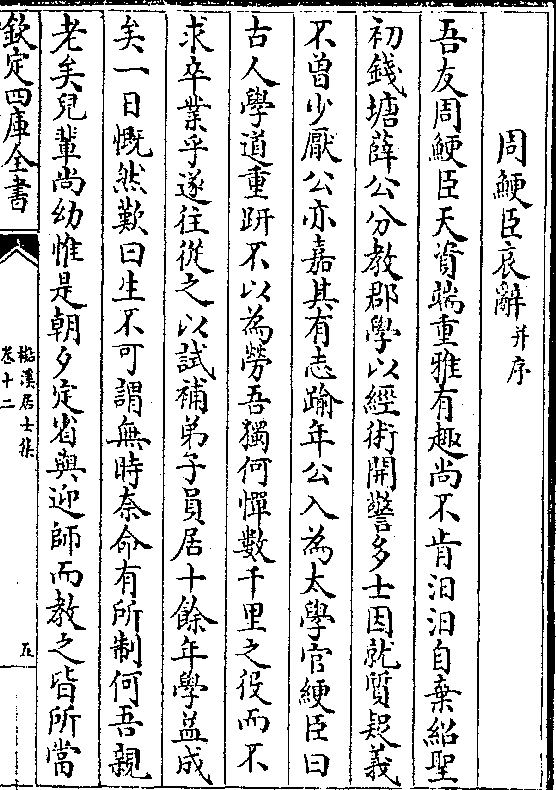 周鯁臣哀辭并序
吾友周鯁臣天資端重雅有趣尚不肯汩汩自棄紹聖
初錢塘薛公分教郡學以經術開警多士因就質疑義
不曽少厭公亦嘉其有志踰年公入為太學官綆臣曰
古人學道重趼不以為勞吾獨何憚數千里之役而不
求卒業乎遂往從之以試補弟子員居十餘年學益成
矣一日慨然歎曰生不可謂無時奈命有所制何吾親
老矣兒輩尚幼惟是朝夕定省與迎師而教之皆所當
欽定四庫全書
卷十二
溪居士集
五